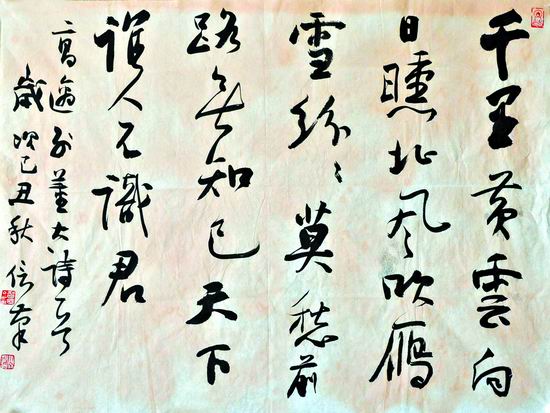 千里黄雲白
日曛北风吹鴈
雪紛紛莫愁前
路無知己天下
誰人不識君
高適别董大詩一首
歲次己丑秋信